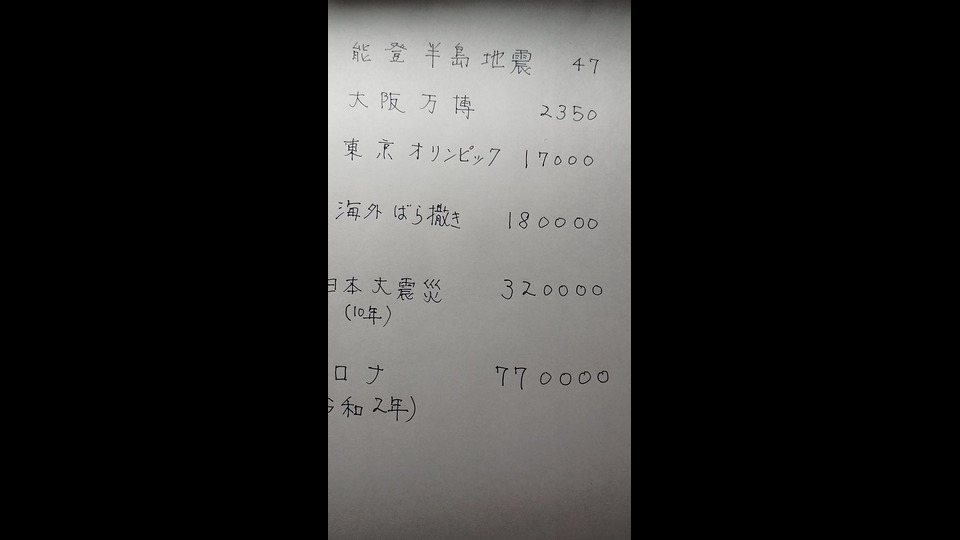 能登半島地震 47
大阪万博 2350
東京オリンピック 17000
海外ばら撒き 180000
日本大震災 320000
(10年)
ロナ 770000
和2年)